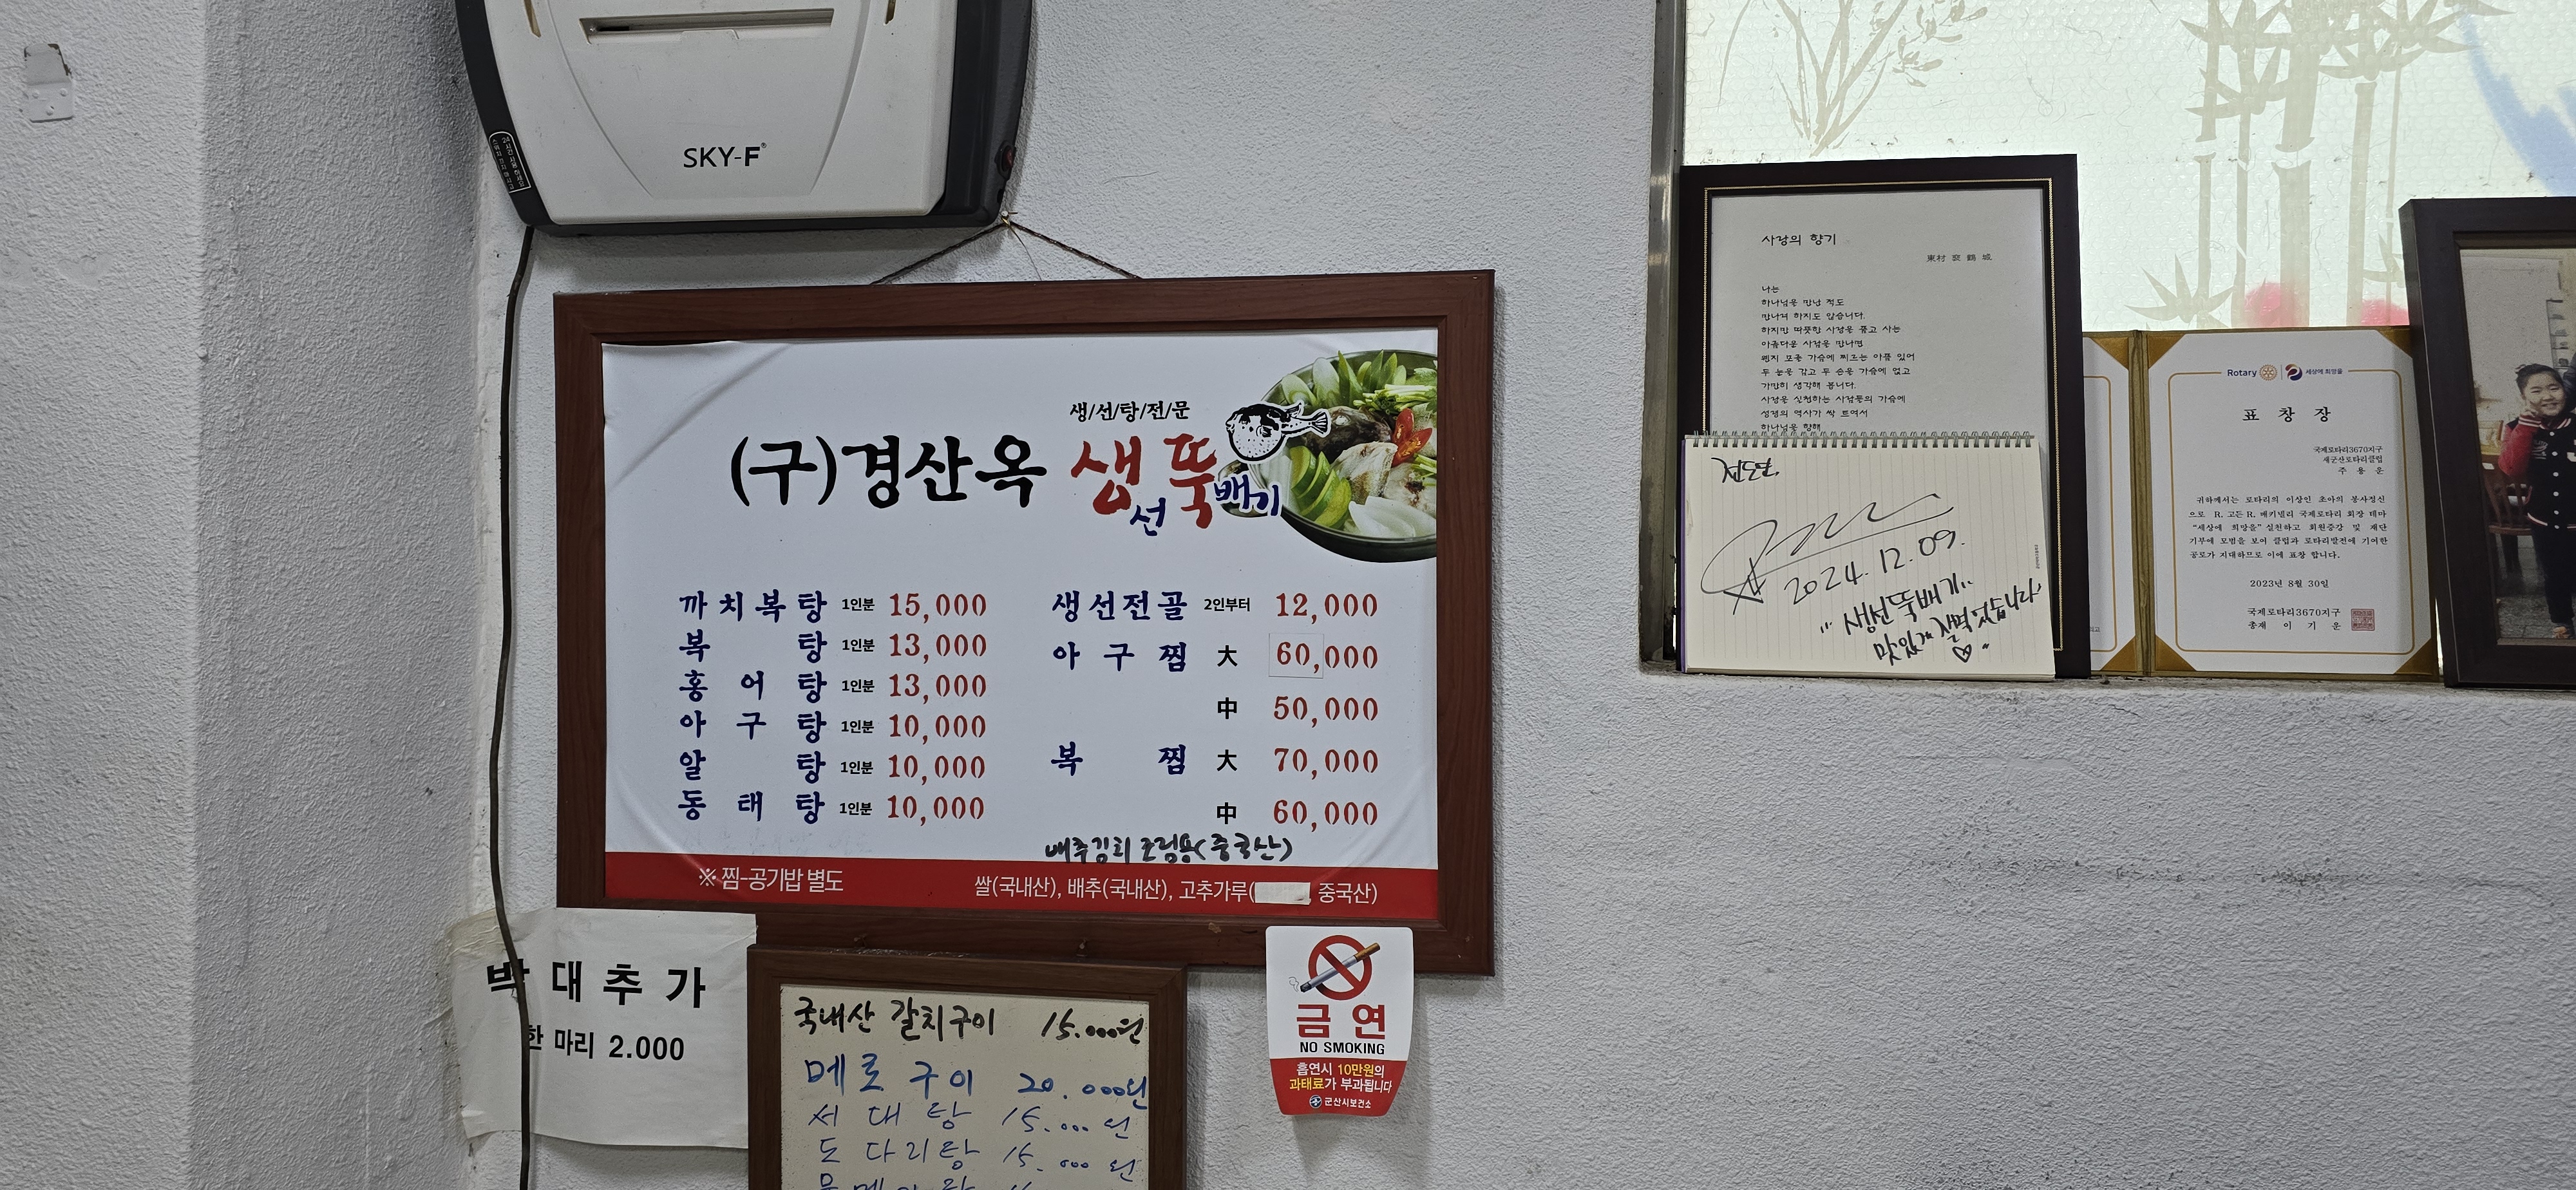 SKY-F
생/선/탕/전/문
(구)경산옥 생선뚝배기
까치복탕 1인분 15,000
복탕 1인분 13,000
홍어탕 1인분 13,000
아구탕 1인분 10,000
알탕 1인분 10,000
동태탕 1인분 10,000
생선전골 2인부터 12,000
아구찜 大 60,000
中 50,000
복찜 大 70,000
中 60,000
배추김치 조림용(중국산)
※ 찜-공기밥 별도
쌀(국내산), 배추(국내산), 고추가루( , 중국산)
박대추가
한 마리 2.000
국내산 갈치구이 15.000원
메로구이 20.000원
서대탕 15.000원
도다리탕 15.000원
금연
NO SMOKING
흡연시 10만원의
과태료가 부과됩니다
군산시보건소
사랑의 향기
나는
하나님을 만난 적도
만나려 하지도 않습니다.
하지만 따뜻한 사랑을 품고 사는
아름다운 사람을 만나면
왠지 모를 가슴에 찌르는 아픔 있어
두 눈을 감고 두 손을 가슴에 얹고
가만히 생각해 봅니다.
사랑을 실천하는 사람들의 가슴에
성령의 역사가 싹 트여서
하나님을 향해
2024.12.09.
"생선뚝배기"
맛있게 잘먹었습니다
Rotary 세상에 희망을
표창장
국제로타리3670지구
새군산로타리클럽
주용운
귀하께서는 로타리의 이상인 초아의 봉사정신
으로 R. 고든 R. 매키널리 국제로타리 회장 테마
"세상에 희망을" 실천하고 회원증강 및 재단
기부에 모범을 보여 클럽과 로타리발전에 기여한
공로가 지대하므로 이에 표창 합니다.
2023년 8월 30일
국제로타리3670지구
총재 이기운